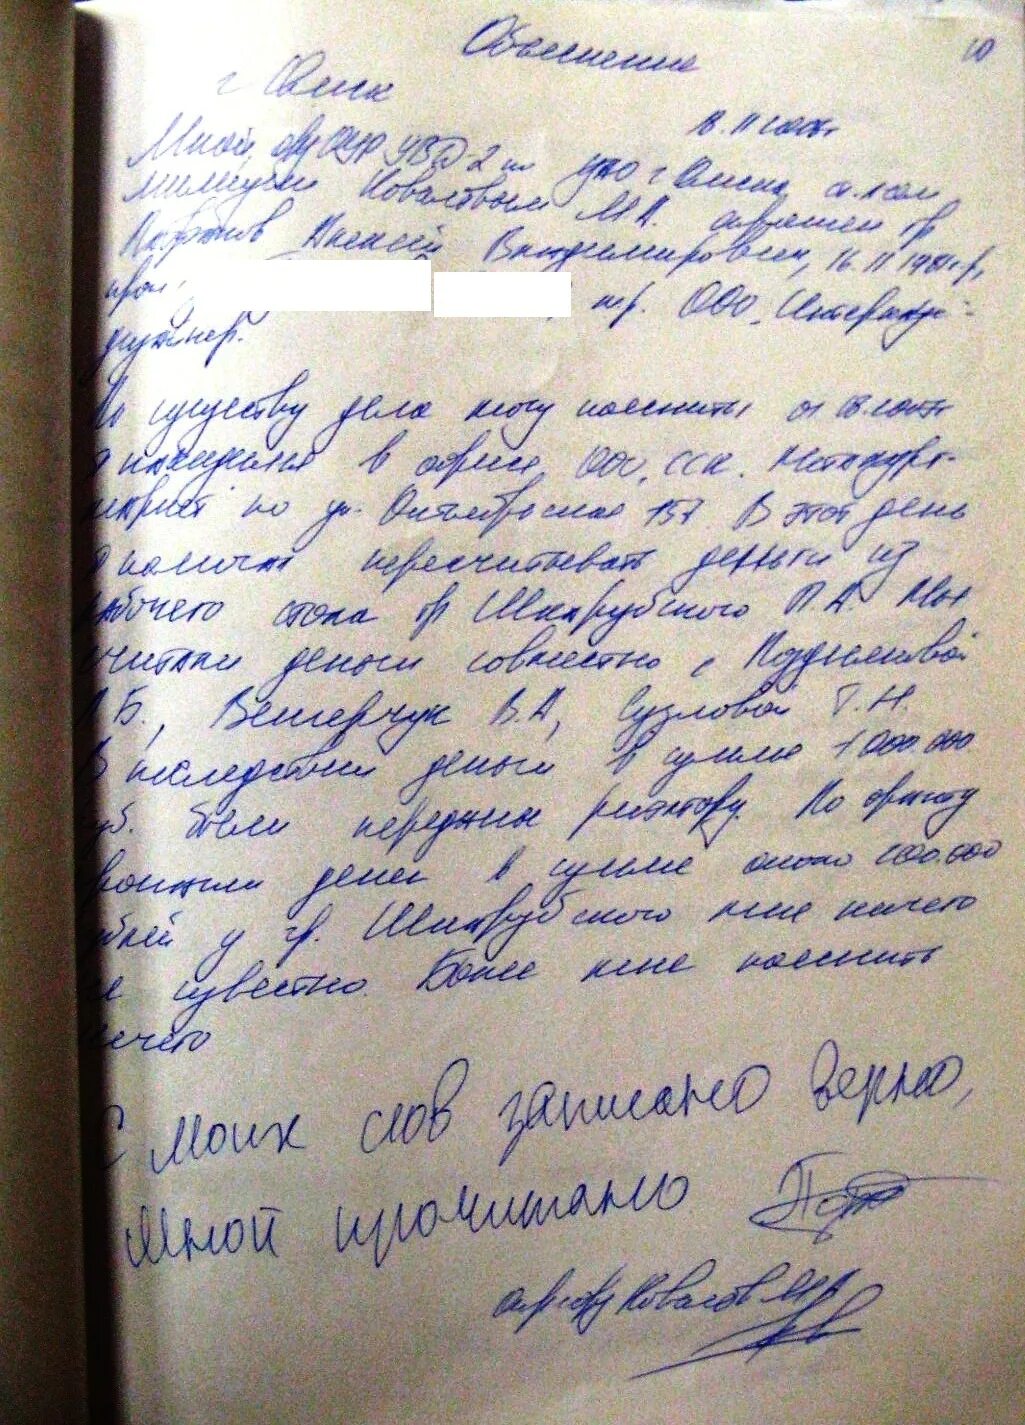 Объяснение
10
г Омск
18.11.2007г
Мной, о/у ОУР УВД-2 по УАО г Омска ст. л-том
милиции Ковалёвым М.А. опрошен гр
Алексей Владимирович, 16.11.1981г.р,
прож.
, раб. ООО "Интерьер-
дизайнер.
По существу дела могу пояснить
я находился в офисе ООО "ССК. Металлург-
по ул. Октябрьская 157 В этот день
я помогал пересчитывать деньги из
рабочего стола гр Шкарубского П.А. Мы
считали деньги совместно с
.Б., Вешерчук В.А, Сузловой Г.Н.
В последствии деньги в сумме 1 000.000
руб. были переданы риэлтору. По факту
пропажи денег в сумме около 200.000
рублей у гр. Шкарубского мне ничего
не известно. Более мне пояснить
нечего
С моих слов записано верно,
Мной прочитано
Опросил Ковалёв М.А.